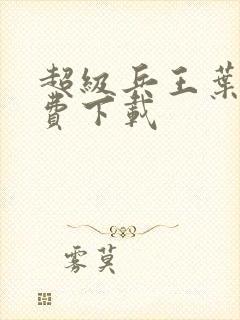 超級兵王葉
費下載
雾莫